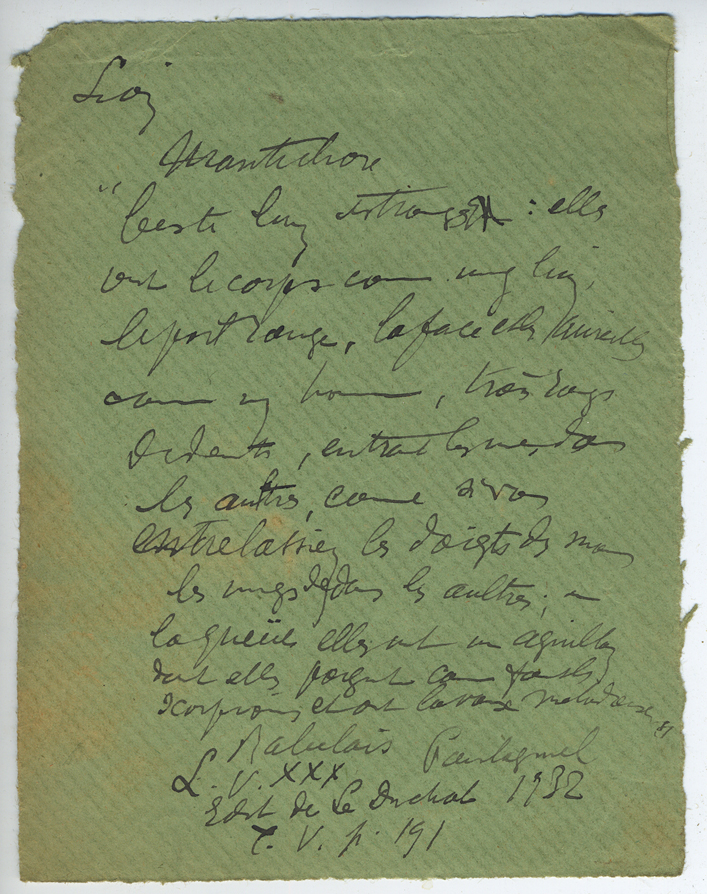 Lion
Mantichore
" beste bien estrange : elles
ont le corps comme ung lion,
le port rouge, la face et les aureilles
comme ung homme, trois rangs
de dents, entrant les unes dans
les aultres, comme si vous
entrelassiez les doigts des mains
les ungs dedans les aultres ; en
la queüe elles ont un aguillon
dont elles poignent comme font les
scorpions et ont la voix melodieuse "
Rabelais Pantagruel
L. V. XXX
Edit de Le Duchat 1732
T. V. p. 191